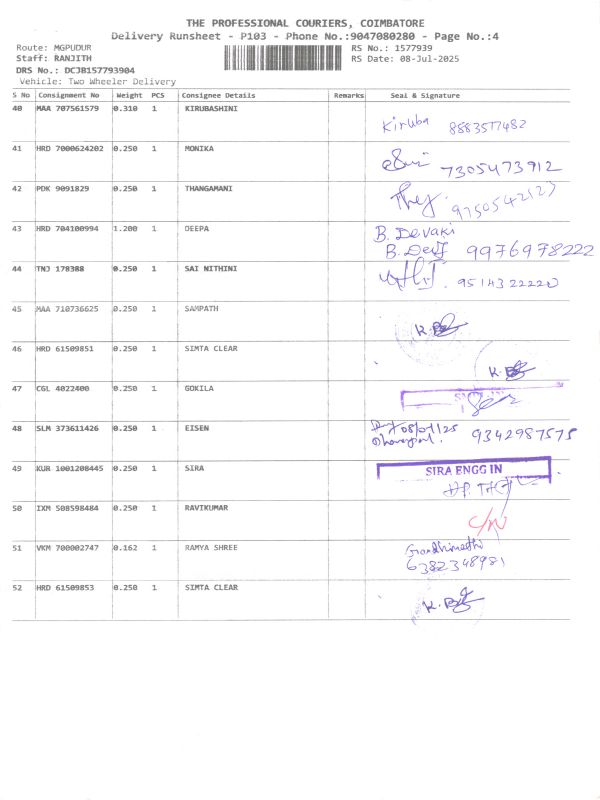 THE PROFESSIONAL COURIERS, COIMBATORE
Delivery Runsheet - P103 - Phone No.:9047080280 - Page No.:4
Route: MGPUDUR
RS No.: 1577939
Staff: RANJITH
RS Date: 08-Jul-2025
DRS No.: DCJB157793904
Vehicle: Two Wheeler Delivery
S No Consignment No Weight PCS Consignee Details Remarks Seal & Signature
40 MAA 707561579 0.310 1 KIRUBASHINI
Kiruba 8883517482
41 HRD 7000624202 0.250 1 MONIKA
7305473912
42 PDK 9091829 0.250 1 THANGAMANI
9750542123
43 HRD 704100994 1.200 1 DEEPA
B. Devaki
B. Dev 9976978222
44 TNJ 178388 0.250 1 SAI NITHINI
9514322220
45 MAA 710736625 0.250 1 SAMPATH
46 HRD 61509851 0.250 1 SIMTA CLEAR
47 CGL 4022400 0.250 1 GOKILA
48 SLM 373611426 0.250 1 EISEN
08/07/25
9342987575
49 KUR 1001208445 0.250 1 SIRA
SIRA ENGG IN
50 IXM 508598484 0.250 1 RAVIKUMAR
C/N
51 VKM 700002747 0.162 1 RAMYA SHREE
Grandhimathi
6382348981
52 HRD 61509853 0.250 1 SIMTA CLEAR